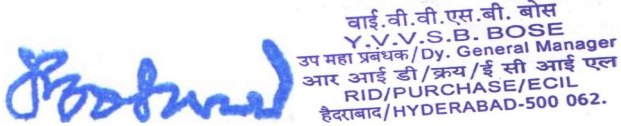 वाई.वी.वी.एस.बी. बोस
Y.V.V.S.B. BOSE
उप महा प्रबंधक/Dy. General Manager
आर आई डी/क्रय/ई सी आई एल
RID/PURCHASE/ECIL
हैदराबाद/HYDERABAD-500 062.